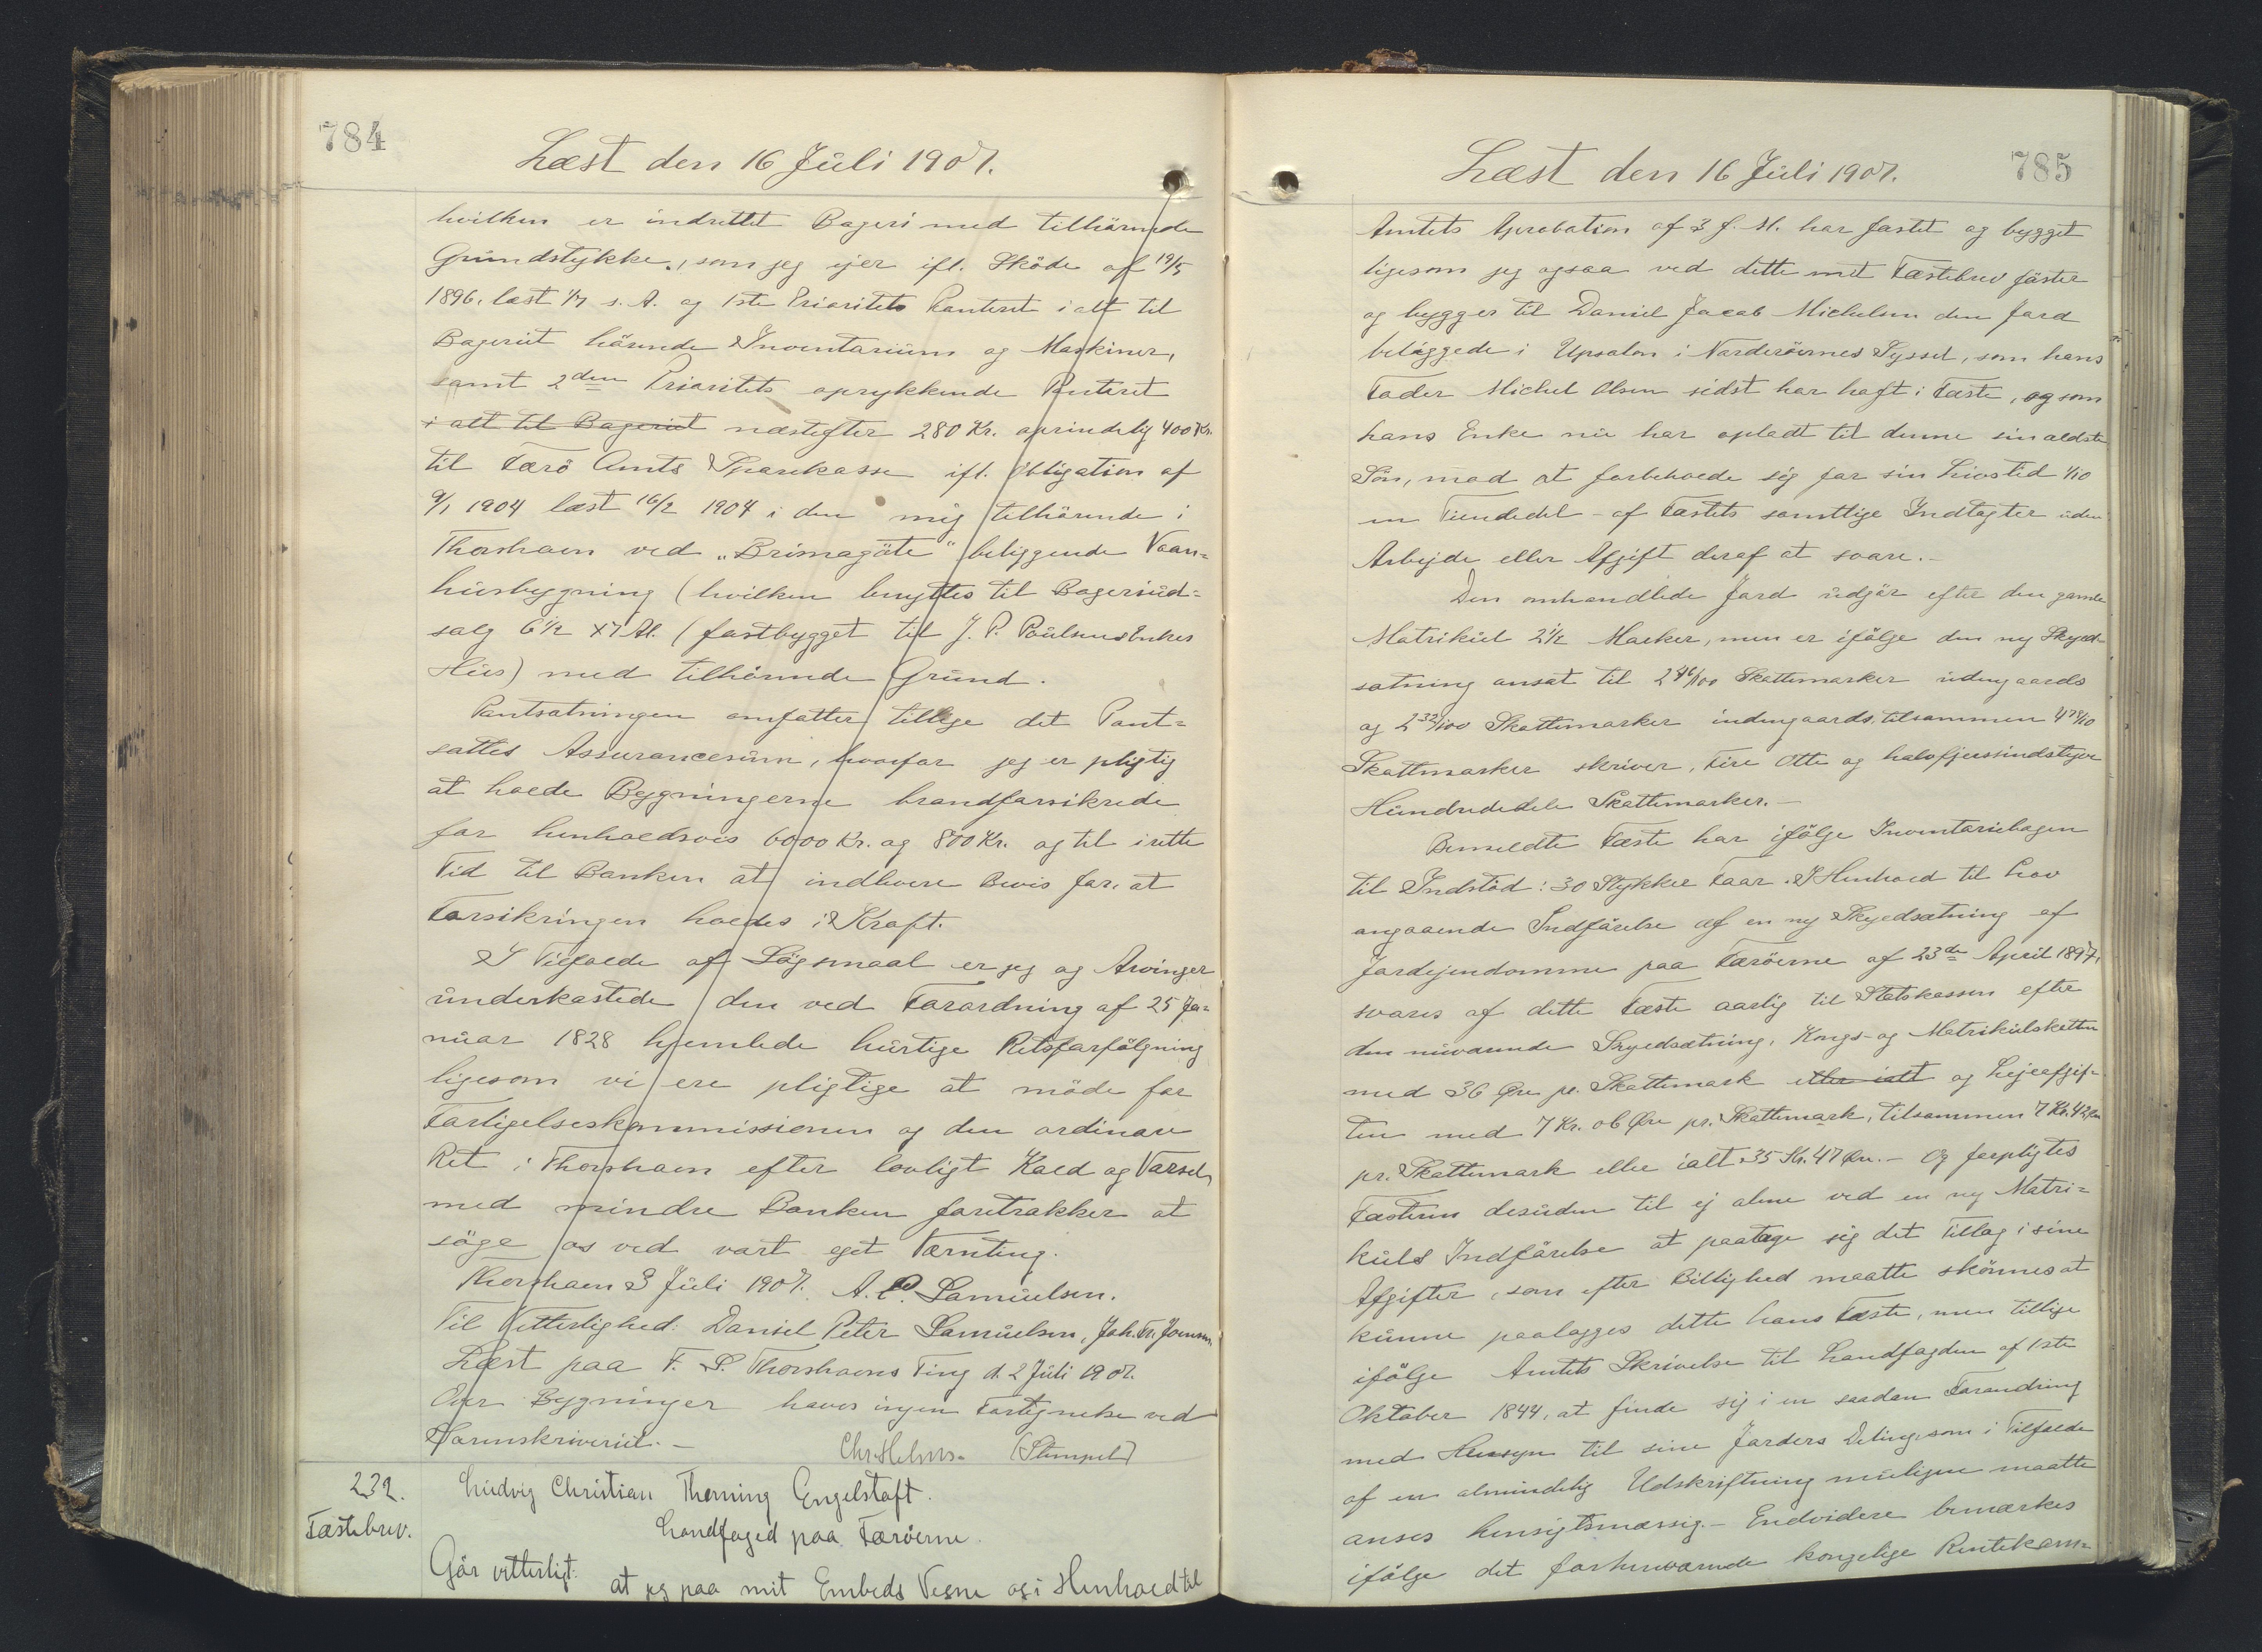 784
Læst den 16 Júli 1907.
hvilken er indrettet Bageri med tilhörende
Grúndstykke, som jeg ejer ifl. Sköde af 19/5
1896, læst 1/7 s. A. og 1ste Prioritets Panteret i alt til
Bageriet hörende Inventariúm og Maskiner,
samt 2den Prioritets oprykkende Panteret
i alt til Bageriet næstefter 280 Kr. oprindelig 400 Kr.
til Færö Amts Sparekasse ifl. Obligation af
9/1 1904 læst 16/2 1904 i den mig tilhörende i
Thorshavn ved „Brimagöte" beliggende Vaan=
húsbygning (hvilken benyttes til Bageriúd=
salg 6 1/2 x 7 Al. (fastbygget til J. P. Poúlsens Enkes
Hús) med tilhörende Grúnd.
Pantsætningen omfatter tillige det Pant=
sattes Assurancesúm, hvorfor jeg er pligtig
at holde Bygningerne brandforsikrede
for henholdsvis 6000 Kr. og 800 Kr. og til i rette
Tid til Banken at indlevere Bevis for, at
Forsikringen holdes i Kraft.
I Tilfælde af Sögsmaal er jeg og Arvinger
únderkastede den ved Forordning af 25 Ja=
núar 1828 hjemlede húrtige Retsforfölgning
ligesom vi ere pligtige at möde for
Forligelseskommissionen og den ordinære
Ret i Thorshavn efter lovligt Kald og Varsel,
med mindre Banken foretrækker at
söge os ved vort eget Værnting.
Thorshavn 3 Júli 1907. A. P. Samúelsen.
Til Vitterlighed: Daniel Peter Samúelsen, Joh. Fr. Joensen
Læst paa F. S. Thorshavns Ting d. 2 Júli 1907.
Over Bygninger haves ingen Fortegnelse ved
Sorenskriveriet.- Chr. Helms. (Stempel)
232.
Fæstebrev.
Lúdvig Christian Thorning Engelstoft.
Landfoged paa Færöerne.
Gör vitterligt: at jeg paa mit Embeds Vegne og i Henhold til
785
Læst den 16 Júli 1907.
Amtets Aprobation af 3 f. M. har fæstet og bygget
ligesom jeg ogsaa ved dette mit Fæstebrev fæster
og bygger til Daniel Jacob Michelsen den Jord
beliggede i Upsalon i Norderöernes Syssel, som hans
Fader Michel Olsen sidst har haft i Fæste, og som
hans Enke nú har opladt til denne sin ældste
Sön, mod at forbeholde sig for sin Livstid 1/10
en Tiendedel - af Fæstets samtlige Indtægter úden
Arbejde eller Afgift deraf at svare.-
Den omhandlede Jord údgör efter den gamle
Matrikúl 2 1/2 Marker, men er ifölge den ny Skyld
sætning ansat til 2 46/100 Skattemarker údengaards
og 2 32/100 Skattemarker indengaards, tilsammen 4 78/10
Skattemarker skriver, Fire Otte og halvfjerssindstyve
Húndrededele Skattemarker.-
Bemeldte Fæste har ifölge Inventariebogen
til Indstöd: 30 Stykker Faar. I Henhold til Lov
angaaende Indförelse af en ny Skyldsætning af
Jordejendomme paa Færöerne af 23de April 1897,
svares af dette Fæste aarlig til Statskassen efter
den núværende Skyldsætning, Kongs- og Matrikúlskatten
med 36 Øre pr. Skattemark eller ialt og Lejeafgif-
ten med 7 Kr. 06 Øre pr. Skattemark, tilsammen 7 Kr. 42 Øre
pr. Skattemark eller ialt 35 Kr. 47 Øre.- Og forpligtes
Fæsteren desúden til ej alene ved en ny Matri=
kúls Indförelse at paatage sig det Tillæg i sine
Afgifter, som efter Billighed maatte skönnes at
kúnne paalægges dette hans Fæste, men tillige
ifölge Amtets Skrivelse til Landfogden af 1ste
Oktober 1844, at finde sig i en saadan Forandring
med Hensyn til sine Jorders Deling, som i Tilfælde
af en almindelig Udskiftning múligen maatte
anses hensigtsmæssig.- Endvidere bemærkes
ifölge det forhenværende kongelige Rentekam=